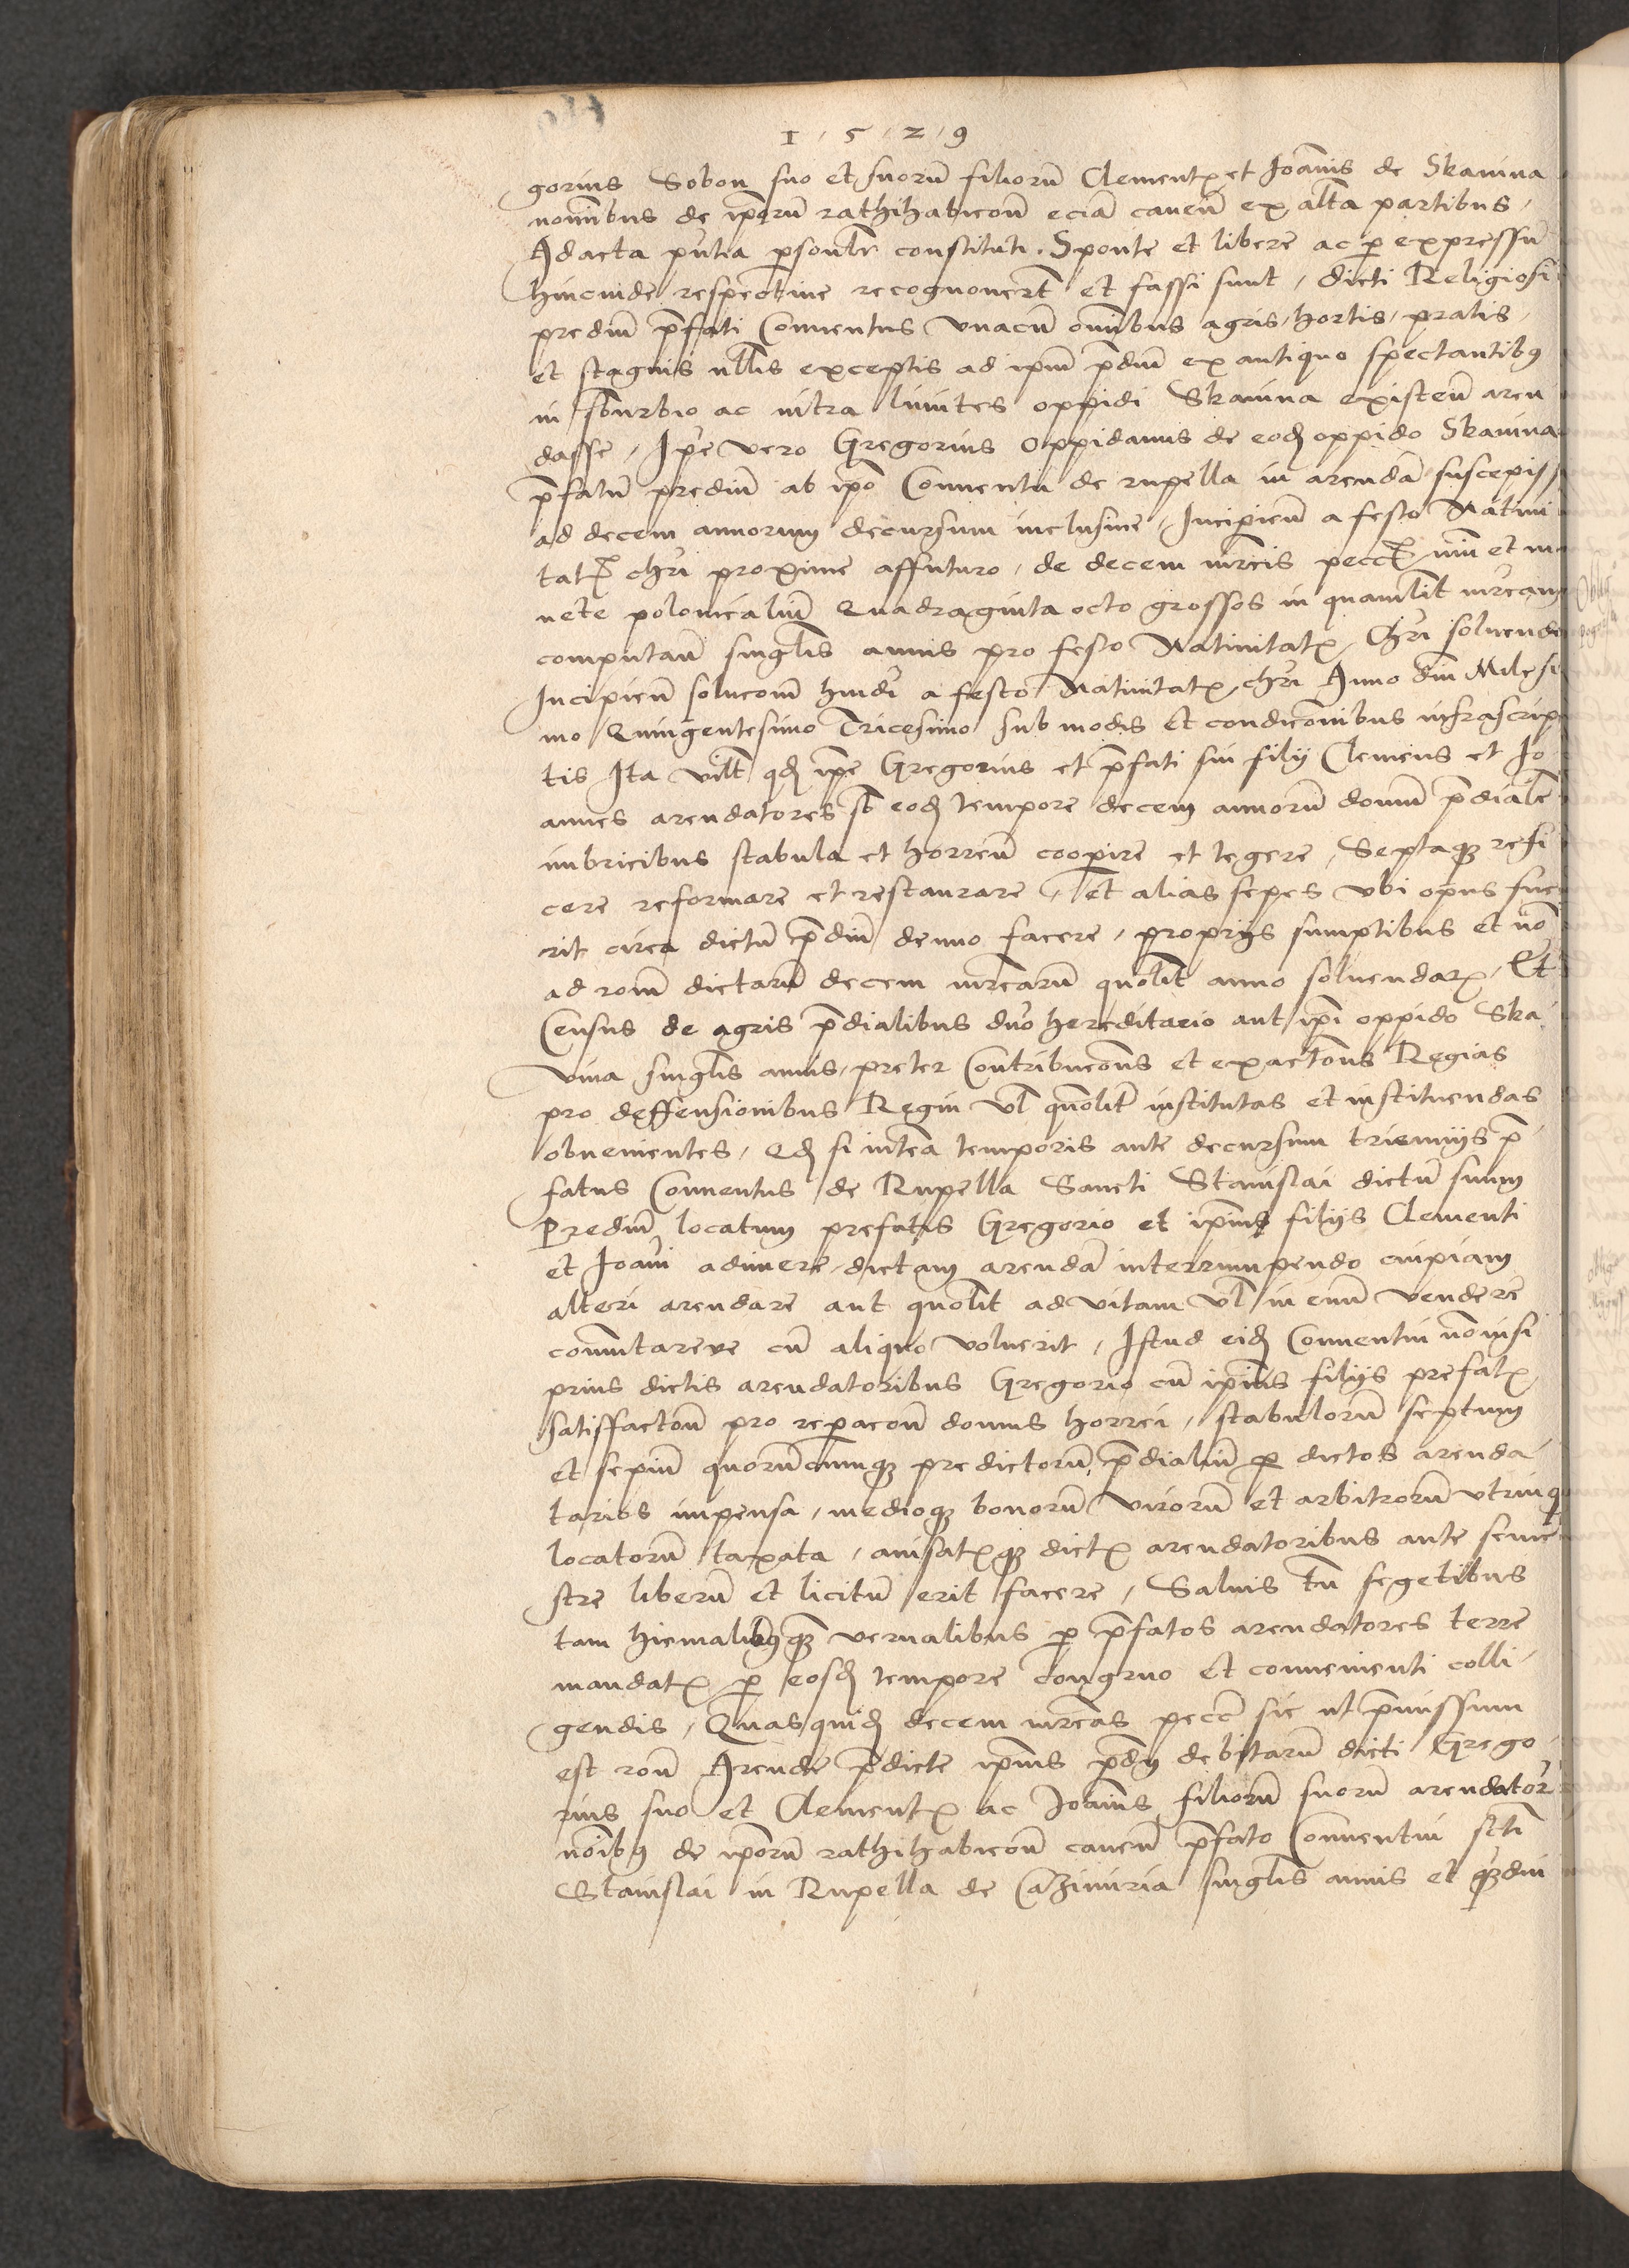 1 5 2 9
gorius Sobon suo et suorū filiorū Clementꝭ et Joānis de Skauina
nomībus de ip̄orū rathihabicōn eciā cauen̄ ex alt̄a partibus,
Ad acta pn̄tia ꝑsonlr̄ constituti. Sponte et libere ac ꝑ expressū
hincinde respectiue recognouert̄ et fassi sunt, dicti Religiosi
prediū p̄fati Conuentus vnacū omībus agris, hortis, pratis,
et stagnis nllīs exceptis ad ip̄m p̄diū ex antiquo spectantibꝰ
in sb̄urbio ac intra limites oppidi Skauina existeñ aren
dasse, Ip̄e vero Gregorius oppidanus de eodē oppido Skauina
p̄fatū prediū ab ip̄o Conuentu de rupella in arendā suscepiss
ad decem annorum decursum inclusiue, Incipieñ a festo Natiui
tatꝭ chr̄i proxime affuturo, de decem mrcis pecc̄ꝭ nūi et mo
nete polonicaliū Quadraginta octo grossos in quamlit mrcam
computañ singlīs annis pro festo Natiuitatꝭ Chr̄i soluendꝭ
Incipieñ solucōm hmōi a festo Natiuitatꝭ chr̄i Anno dnī Milesi
mo Quingentesimo Tricesimo sub modis et condicōnibus infrascrip
tis Ita vilt̄ qđ ip̄e Gregorius et p̄fati sui filij Clemens et Jo
annes arendatores sb̄ eodē tempore decem annorū domū p̄dialē
imbricibus stabula et horreū cooꝑire et tegere, Septaqꝫ refi
cere reformare et restaurare, et alias sepes vbi opus fue
rit circa dictū p̄diū denuo facere, proprijs sumptibus et nō
ad rōnē dictarū decem mrcarū quolit̄ anno soluendarꝭ, Et
Census de agris p̄dialibus dūo hereditario aut ip̄i oppido Ska
uina singlīs annis, preter Contribucōnes et exactōnes Regias
pro deffensionibus Regni vl̄ quolit̄ institutas et instituendas
obuenientes, Qđ si intēa temporis ante decursum trieniijs p̄
fatus Conuentus de Rupella Sancti Stanislai dictū suum
Prediū locatum prefatis Gregorio et ip̄ius filijs Clementi
et Joāni adimere, dictam arendā interrumpendo cuipiam
alteri arendare aut quolit̄ ad vitam vl̄ in euū vendere
cōmutareue cū aliquo voluerit, Istud eidē Conuentui nō nisi
prius dictis arendatoribus Gregorio cū ip̄ius filijs prefatꝭ
satisfactōne pro reꝑacōne domus horrei, stabulorū septum
et sepiū quorūcumqꝫ predictorū, p̄dialiū ꝑ dictos arenda
tarios impensa, medioqꝫ bonorū virorū et arbitrorū vtrinqꝫ
locatorū taxata, auisatꝭqꝫ dictꝭ arendatoribus ante seme
stre liberū et licitū erit facere, Saluis tn̄ segetibus
tam hiemalibꝰqꝫ vernalibus ꝑ p̄fatos arendatores terre
mandatꝭ ꝑ eosdē tempore congruo et conuenienti colli
gendis, Quasquidē decem mrcas pecc̄ sic ut p̄missum
est rōne Arende p̄dicte ip̄ius p̄dij debitarū dicti Grego
rius suo et Clementꝭ ac Joānis filiorū suorū arendator̄
nōibꝰ de ip̄orū rathihabicōn cauen̄ p̄fato Conuentui scti
Stanislai in Rupella de Cazimiria singlīs annis et qꝫdiu